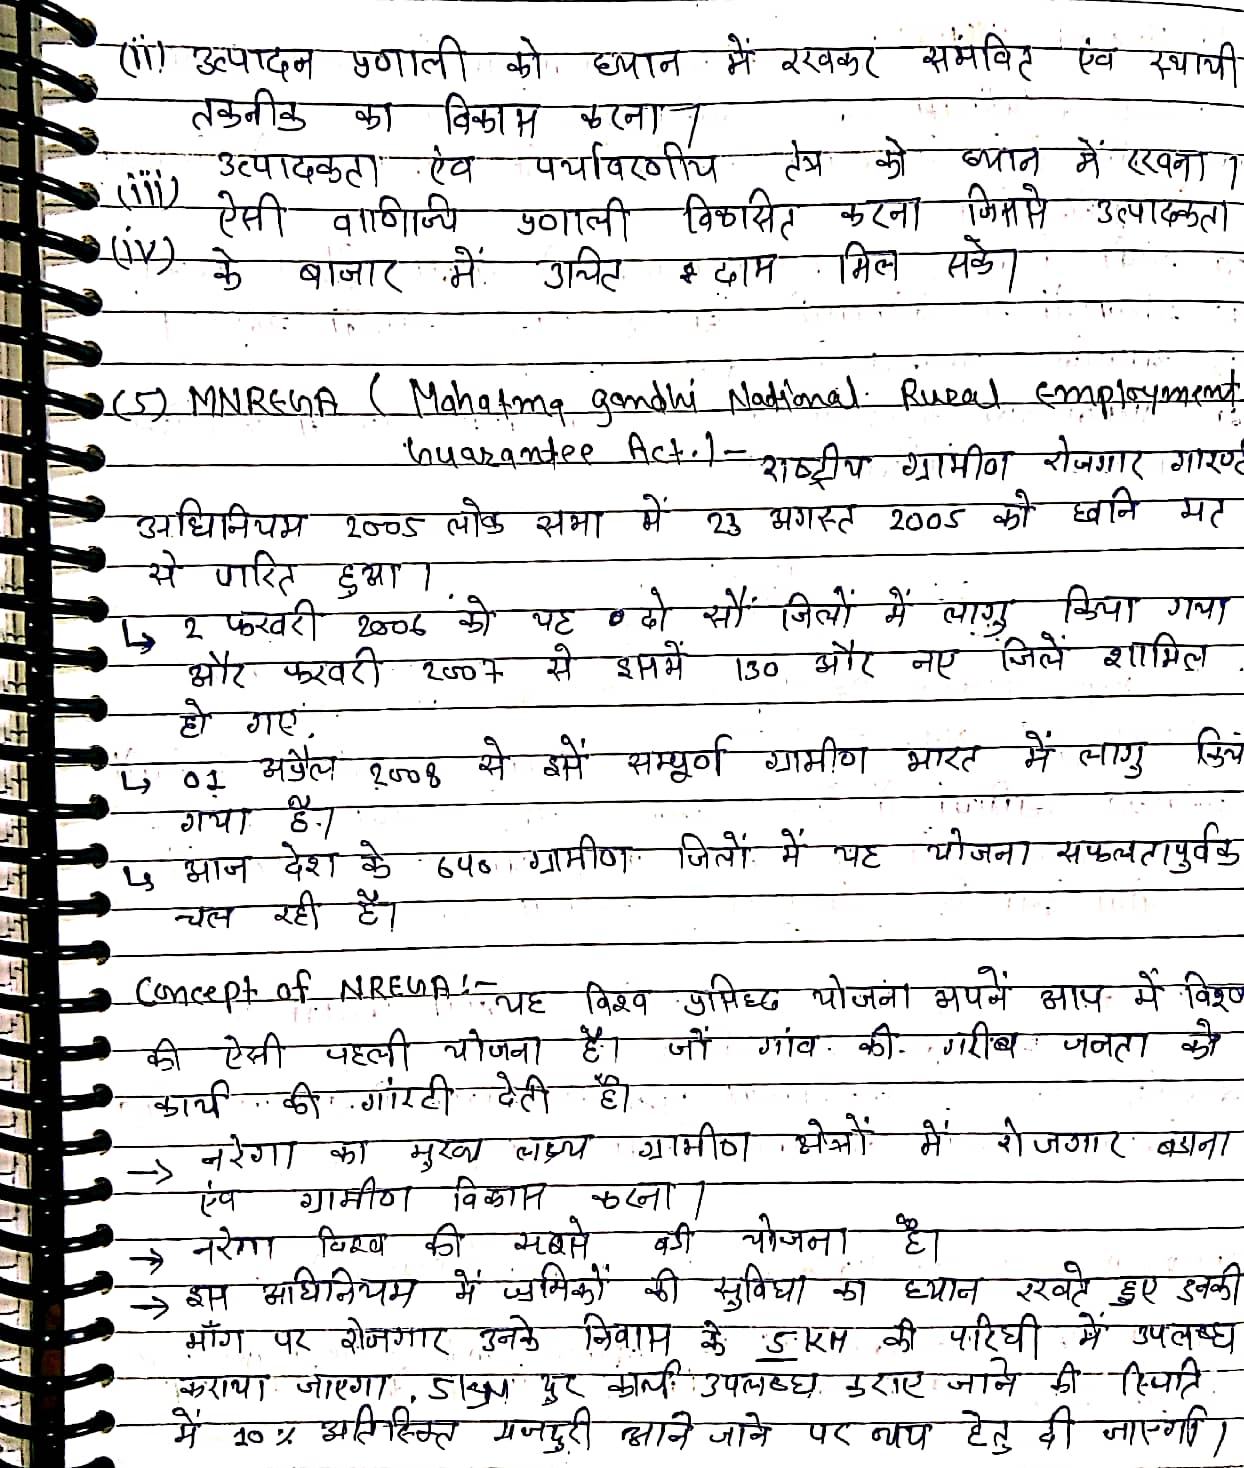 (ii) उत्पादन प्रणाली को ध्यान में रखकर संभवित एंव स्थायी
तकनीक का विकास करना।
(iii) उत्पादकता एंव पर्यावरणीय तंत्र को ध्यान में रखना।
(iv) ऐसी वाणिज्य प्रणाली विकसित करना जिससे उत्पादकता
के बाजार में उचित दाम मिल सके।
(5) MNREGA ( Mahatma gandhi National Rural Employment
Guarantee Act.)- राष्ट्रीय ग्रामीण रोजगार गारण्टी
अधिनियम 2005 लोक सभा में 23 अगस्त 2005 को ध्वनि मत
से पारित हुआ।
↳ 2 फरवरी 2006 को यह दो सौं जिलों में लागु किया गया
और फरवरी 2007 से इसमें 130 और नए जिलें शामिल
हो गए.
↳ 01 अप्रैल 2008 से इसें सम्पूर्ण ग्रामीण भारत में लागु किय
गया है।
↳ आज देश के 640 ग्रामीण जिलों में यह योजना सफलतापुर्वक
चल रही है।
Concept of NREGA:- यह विश्व प्रसिध्द योजना अपनें आप में विश्व
की ऐसी पहली योजना है। जों गांव की गरीब जनता को
कार्य की गांरटी देती है।
→ नरेगा का मुख्य लक्ष्य ग्रामीण क्षेत्रों में रोजगार बढाना
एंव ग्रामीण विकास करना।
→ नरेगा विश्व की सबसे बडी योजना है।
→ इस अधिनियम में श्रमिकों की सुविधा का ध्यान रखते हुए उनकी
माँग पर रोजगार उनके निवास के 5 KM की परिधी में उपलब्ध
कराया जाएगा. 5 दुर कार्य उपलब्ध कराए जाने की स्थिति
में 10% अतिरिक्त मजदुरी आने जाने पर व्यय हेतु दी जाएंगी।